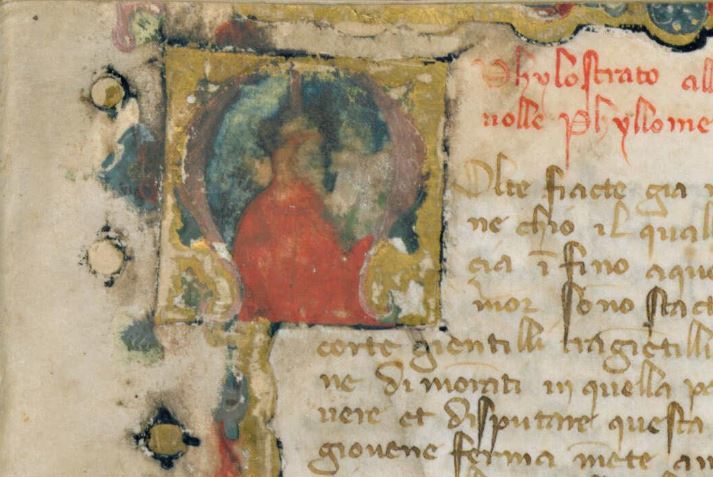 Phylostrato all
nolle Phyllome
Olte fiacte gia
ne chio il qual
cia ī fino aque
mor sono stact
corte gientilli ragiētilli
ne di morati in quella pa
vere et disputare questa
giovene ferma mēte an